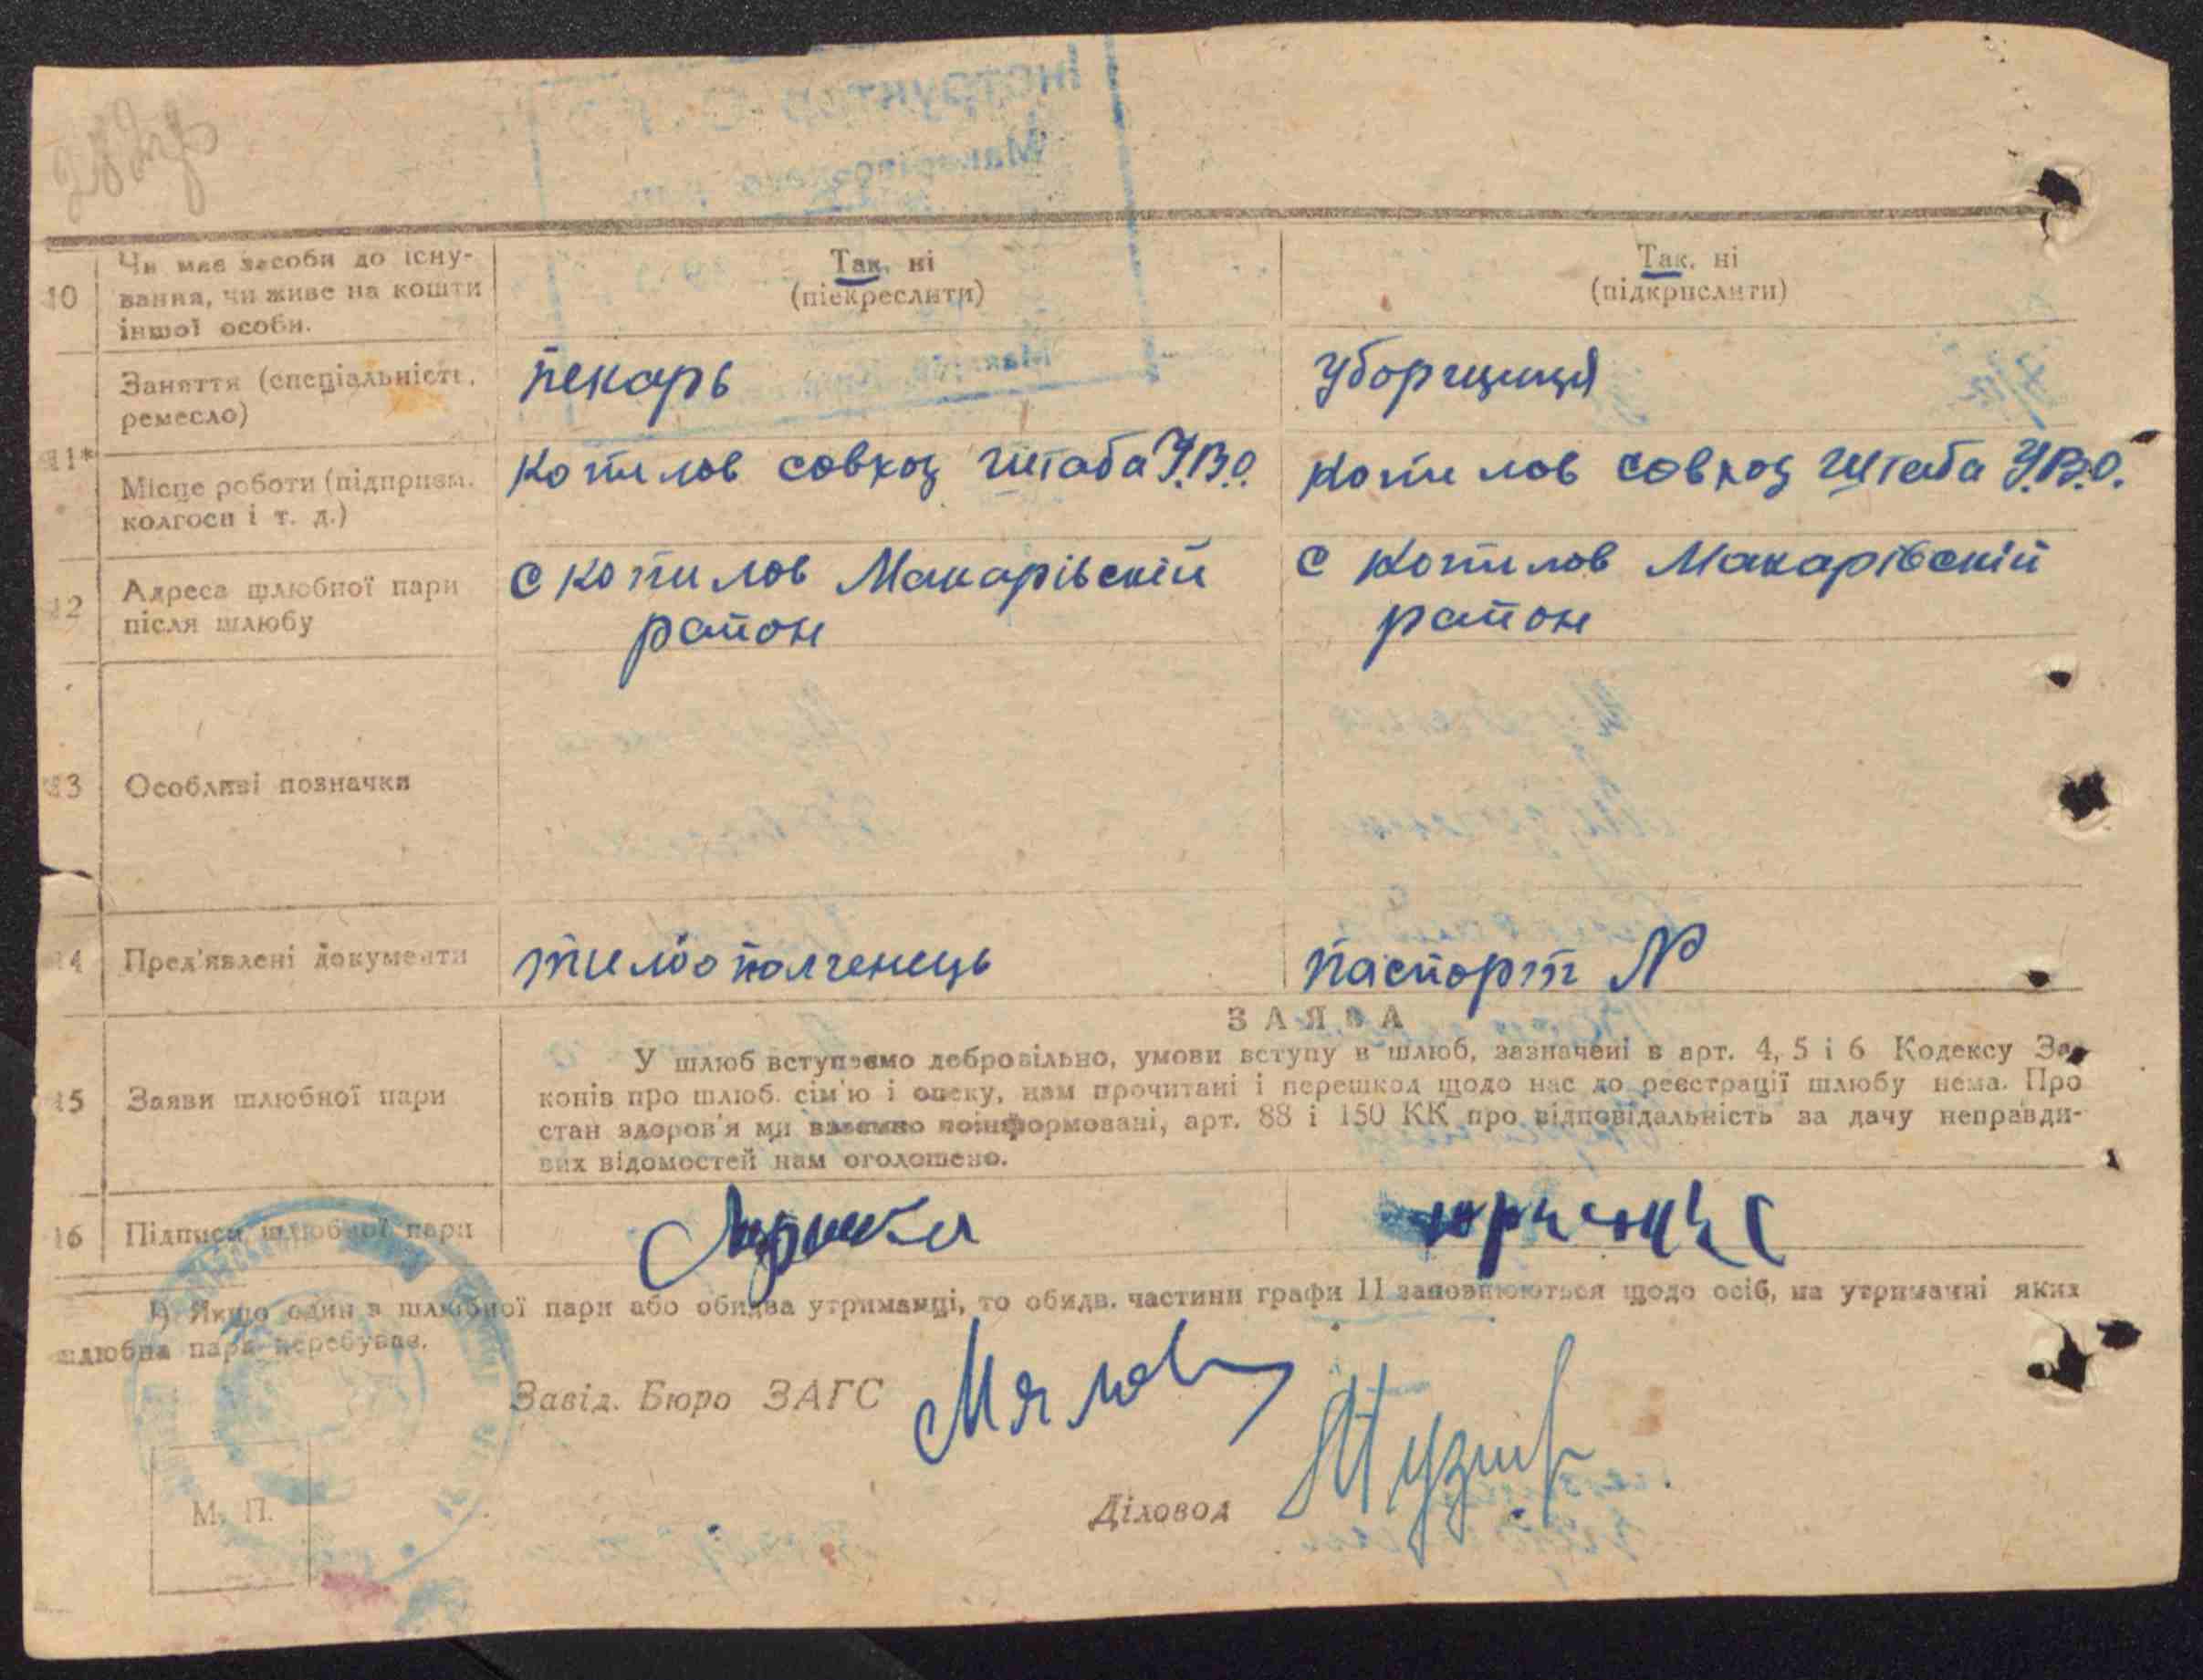 10
Чи має засоби до існу-
вання, чи живе на кошти
іншої особи.
Так, ні
(піекреслити)
Так, ні
(підкрислити)
11*
Заняття (спеціальність,
ремесло)
пекарь
уборщиця
Місце роботи (підприєм.
колгосп і т. д.)
Копилов совхоз штаба У.В.О.
Копилов совхоз штаба У.В.О.
12
Адреса шлюбної пари
після шлюбу
с Копилов Макарівскій
район
с Копилов Макарівскій
район
13
Особливі позначки
14
Пред'явлені документи
паспорт №
ЗАЯВА
15
Заяви шлюбної пари
У шлюб вступаємо добровільно, умови вступу в шлюб, зазначені в арт. 4, 5 і 6 Кодексу За-
конів про шлюб. сім'ю і опеку, нам прочитані і перешкод щодо нас до реєстрації шлюбу нема. Про
стан здоров'я ми взаємно поінформовані, арт. 88 і 150 КК про відповідальність за дачу неправди-
вих відомостей нам оголошено.
16
Підписи шлюбної пари
1) Якщо один з шлюбної пари або обидва утриманці, то обидв. частини графи 11 заповнюються щодо осіб, на утриманні яких
шлюбна пара перебуває.
Завід. Бюро ЗАГС
М. П.
Діловод